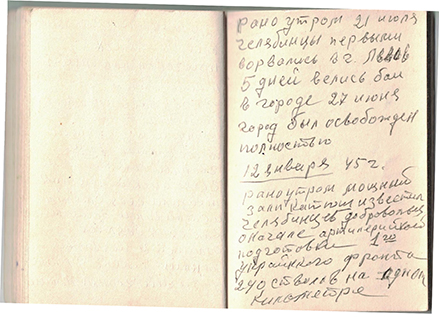 рано утром 21 июля
челябинцы первыми
ворвались в г. Львов
5 дней велись бои
в городе 27 июня
город был освобожден
полностью
12 января 45 г.
рано утром мощный
залп катюш известил
челябинцев добровольц
о начале артилерийской
подготовки 1го
украинного фронта
240 стволов на одном
километре